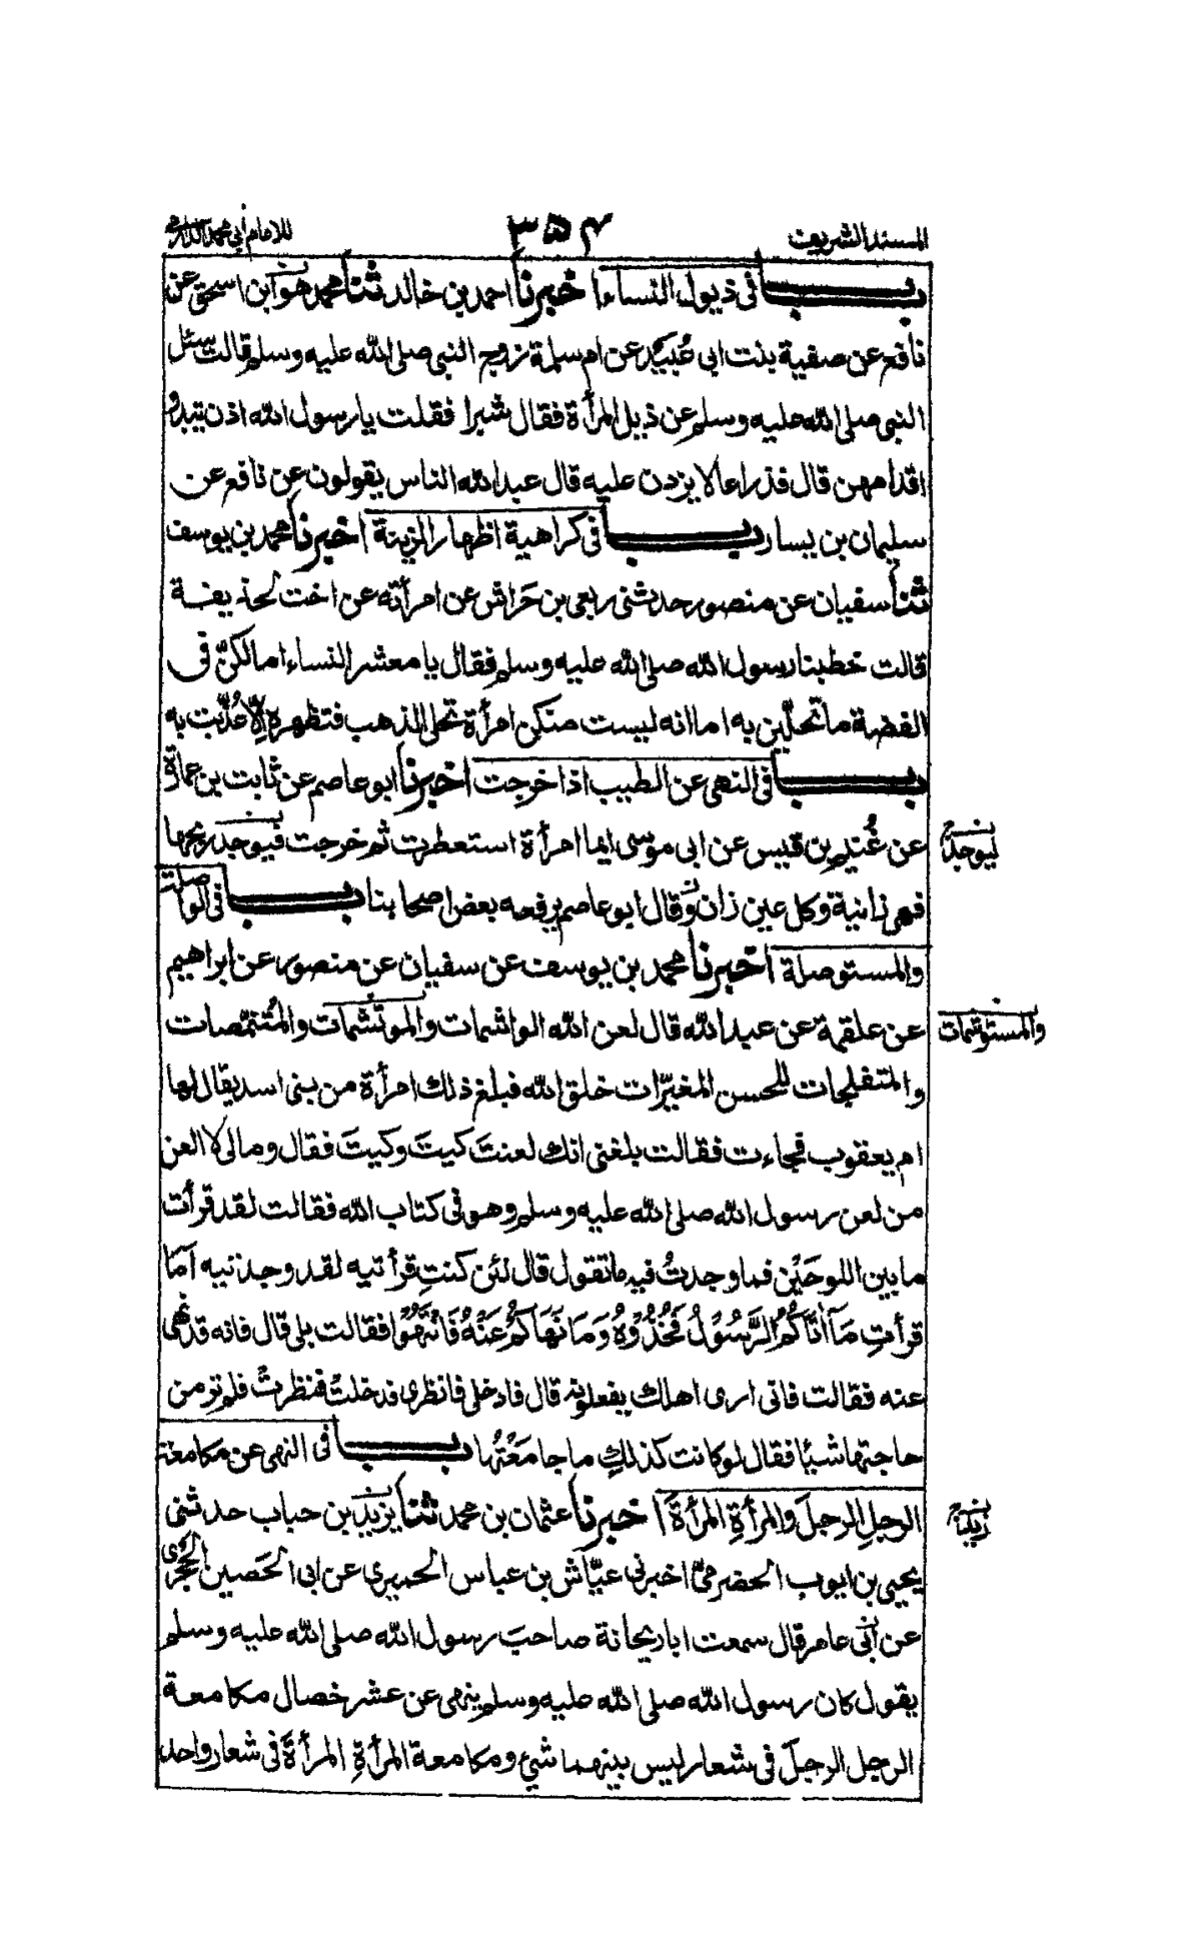 المسند الشريف ٣٥٤ للامام أبي محمد الدارمي
باب في ذيول النساء اخبرنا احمد بن خالد ثنا محمد هو ابن اسحق عن
نافع عن صفية بنت ابي عُبَيد عن ام سلمة زوج النبي صلى الله عليه وسلم قالت سئل
النبي صلى الله عليه وسلم عن ذيل المرأة فقال شبرا فقلت يا رسول الله اذن تبدو
اقدامهن قال فذراعا لا يزدن عليه قال عبد الله الناس يقولون عن نافع عن
سليمان بن يسار باب في كراهية اظهار الزينة اخبرنا محمد بن يوسف
ثنا سفيان عن منصور حدثني ربعي بن حَراش عن امرأته عن اخت لحذيفة
قالت خطبنا رسول الله صلى الله عليه وسلم فقال يا معشر النساء اما لكنّ في
الفضة ما تحلّين به اما انه ليست منكن امرأة تحلى الذهب فتظهره اِلّا عُذّبت به
باب في النهي عن الطيب اذا خرجت اخبرنا ابو عاصم عن ثابت بن عمارة
عن غُنَيم بن قيس عن ابي موسى ايما امرأة استعطرت ثم خرجت فيوجد ريحها
ليوجد
فهي زانية وكل عين زان وقال ابو عاصم يرفعه بعض اصحابنا باب في الواصلة
والمستوصلة اخبرنا محمد بن يوسف عن سفيان عن منصور عن ابراهيم
عن علقمة عن عبد الله قال لعن الله الواشمات والموتشمات والمُتنمّصات
والمستوشمات
والمتفلجات للحسن المغيّرات خلق الله فبلغ ذلك امرأة من بني اسد يقال لها
ام يعقوب فجاءت فقالت بلغني انك لعنتَ كيتَ وكيتَ فقال وما لي لا العن
من لعن رسول الله صلى الله عليه وسلم وهو في كتاب الله فقالت لقد قرأت
ما بين اللوحَيْن فما وجدتُ فيه ما تقول قال لئن كنتِ قرأتيه لقد وجدتيه اَمَا
قرأتِ مَآ اٰتَاكُمُ الرَّسُوْلُ فَخُذُوْهُ وَمَا نَهَاكُمْ عَنْهُ فَانْتَهُوْا فقالت بلى قال فانه قد نهى
عنه فقالت فاني ارى اهلك يفعلونه قال فادخلي فانظري فدخلتْ فنظرتْ فلم تر من
حاجتها شيئا فقال لو كانت كذلكِ ما جامَعْتُها باب في النهي عن مكامعة
الرجلِ الرجلَ والمرأةِ المرأةَ اخبرنا عثمان بن محمد ثنا يزيد بن حباب حدثني
زيد
يحيى بن ايوب الحضرميّ اخبرني عيّاش بن عباس الحميري عن ابي الحَصين الحَجْري
عن أبي عامر قال سمعت ابا ريحانة صاحبَ رسول الله صلى الله عليه وسلم
يقول كان رسول الله صلى الله عليه وسلم ينهى عن عشر خصال مكامعة
الرجل الرجلَ في شعار ليس بينهما شيئ ومكامعة المرأةِ المرأةَ في شعار واحد